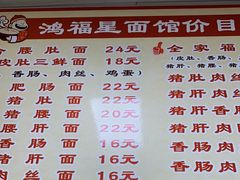 鸿福星面馆价目
腰肚面 24元
皮肚三鲜面 18元
香肠、肉丝、鸡蛋)
肥肠面 22元
猪肚面 22元
猪腰面 22元
猪肝面 16元
香肠面 16元
肉丝面 16元
全家福
(皮肚、香
猪肝、猪
猪肚肉
猪肚香
猪肝肉
猪肝香
香肠肉